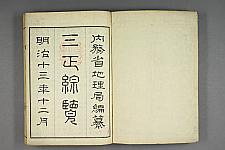 内務省地理局編纂
三正綜覧
明治十三年十二月